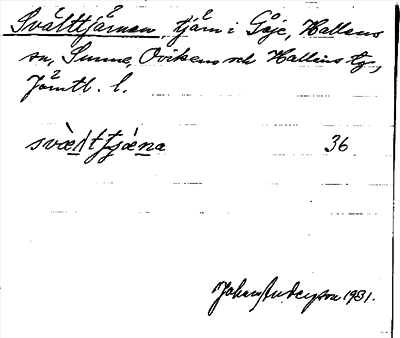 Svälttjärnen, tjärn i Gåje, Hallens
sn, Sunne, Ovikens och Hallens tg,
Jämtl. l.
svæ̀lttjæ̀na 36
Johan Anderson 1931.